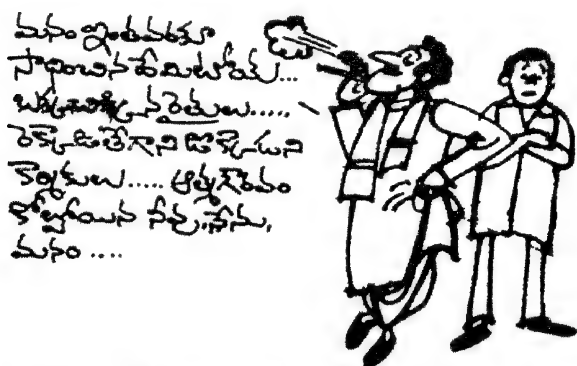 మనం ఇంతవరకూ
సాధించిన దేమిటోయ్...
బక్కచిక్కిన రైతులు.....
రెక్కాడితేగాని డొక్కాడని
కార్మికులు..... ఆత్మగౌరవం
కోల్పోయిన నీవు, నేను,
మనం ....